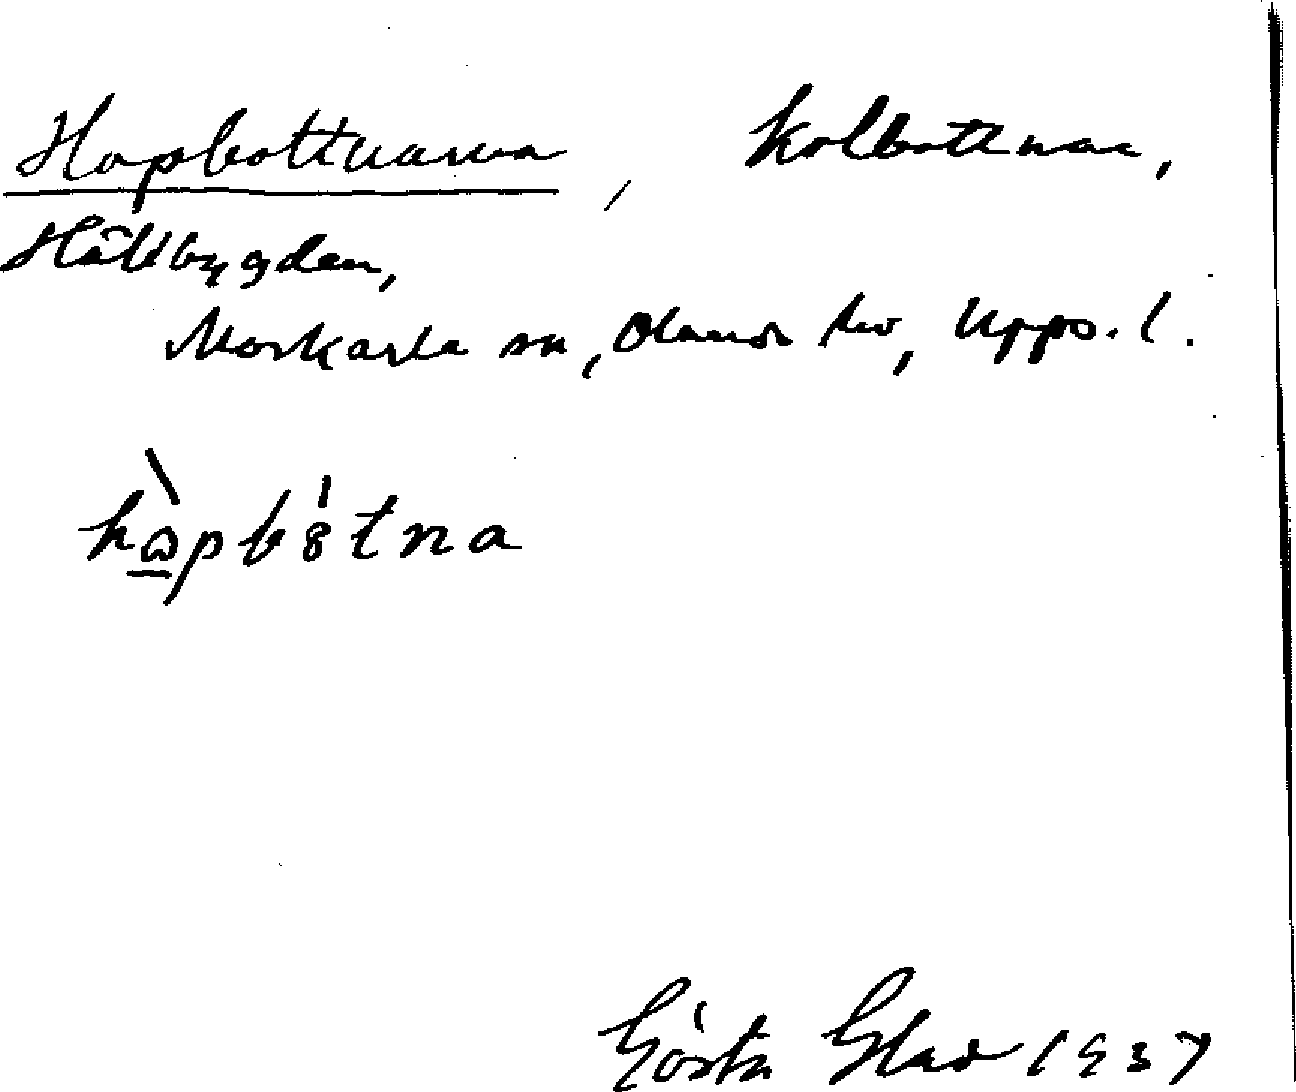 Hopbottnarna, Kolbottnar,
Hållbygden,
Morkarla sn, Olands hd, Upps. l.
Gösta Glad 1937